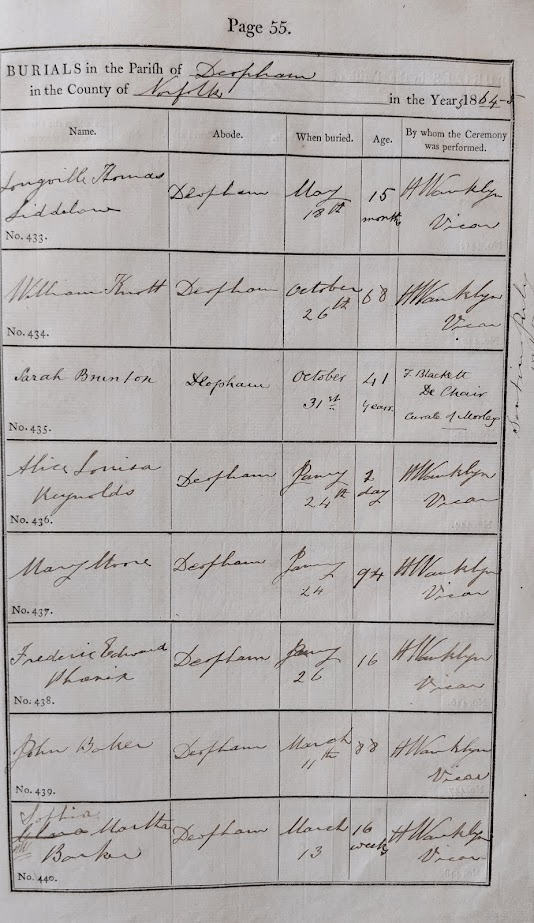 Page 55.
BURIALS in the Parish of Deopham
in the County of Norfolk in the Years 1864-5
Name. Abode. When buried. Age. By whom the Ceremony was performed.
Longville Thomas Deopham May 15 H Wanklyn
Siddelow 18th months Vicar
No. 433.
William Knott Deopham October 68 H Wanklyn
26th Vicar
No. 434.
Sarah Brunton Deopham October 41 F. Blackett
31st years. De Chair
Curate of Morley
No. 435.
Alice Louisa Deopham Janry 2 H Wanklyn
Reynolds 24th day Vicar
No. 436.
Mary Moore Deopham Janry 94 H Wanklyn
24 Vicar
No. 437.
Frederic Edward Deopham Janry 16 H Wanklyn
Phœnix 26 Vicar
No. 438.
John Baker Deopham March 88 H Wanklyn
11th Vicar
No. 439.
Sophia
Martha Deopham March 16 H Wanklyn
Barker 13 weeks Vicar
No. 440.